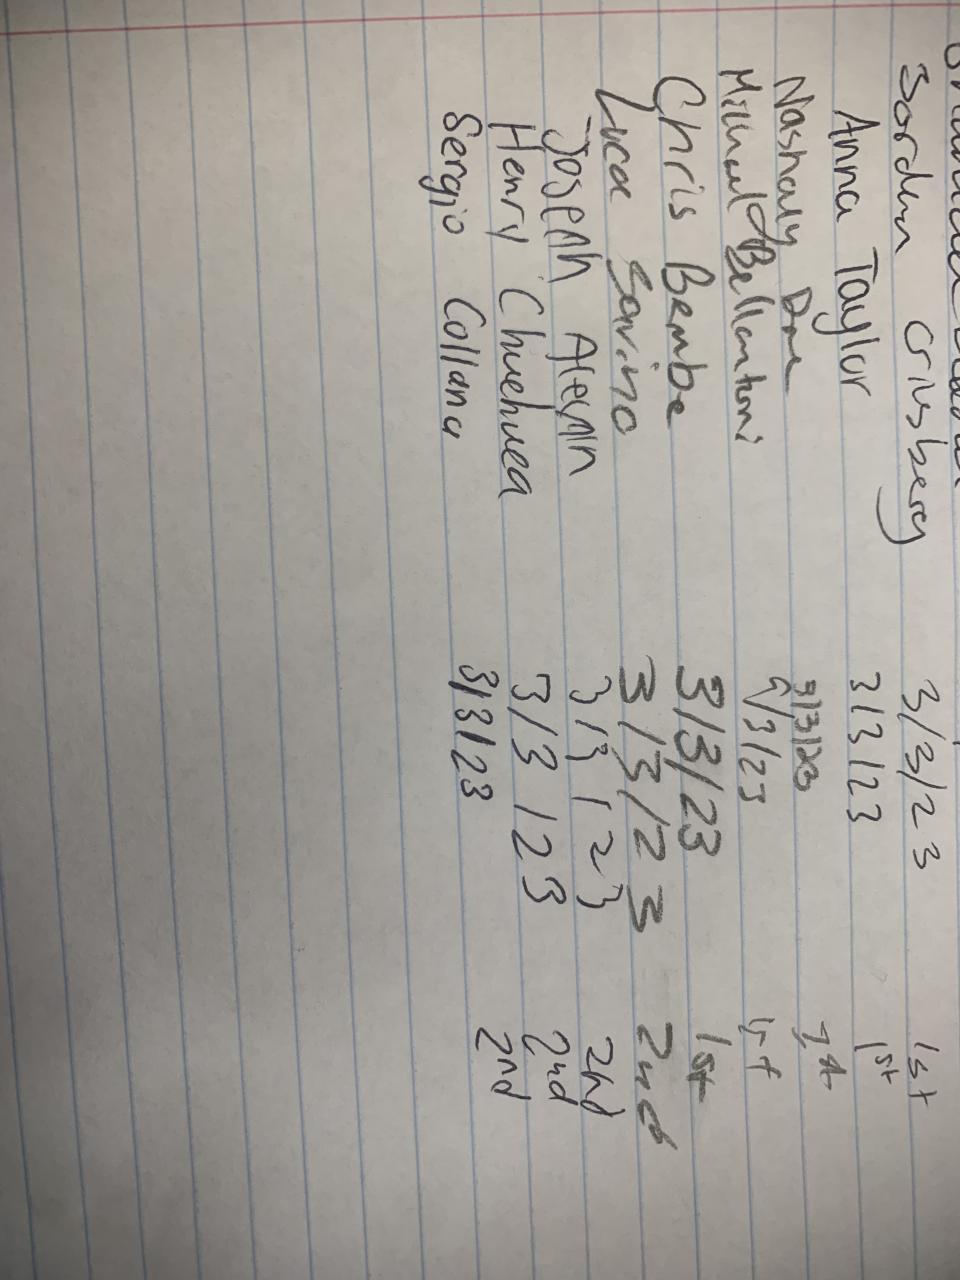 Jordan Criusberg 3/3/23 1st
Anna Taylor 3/3/23 1st
Nashaly 3/3/23 1st
Michael Bellantoni 3/3/23 1st
Chris Bembe 3/3/23 1st
Luca Savino 3/3/23 2nd
Joseph 3/3/23 2nd
Henry Chuehuea 3/3/23 2nd
Sergio Collana 3/3/23 2nd